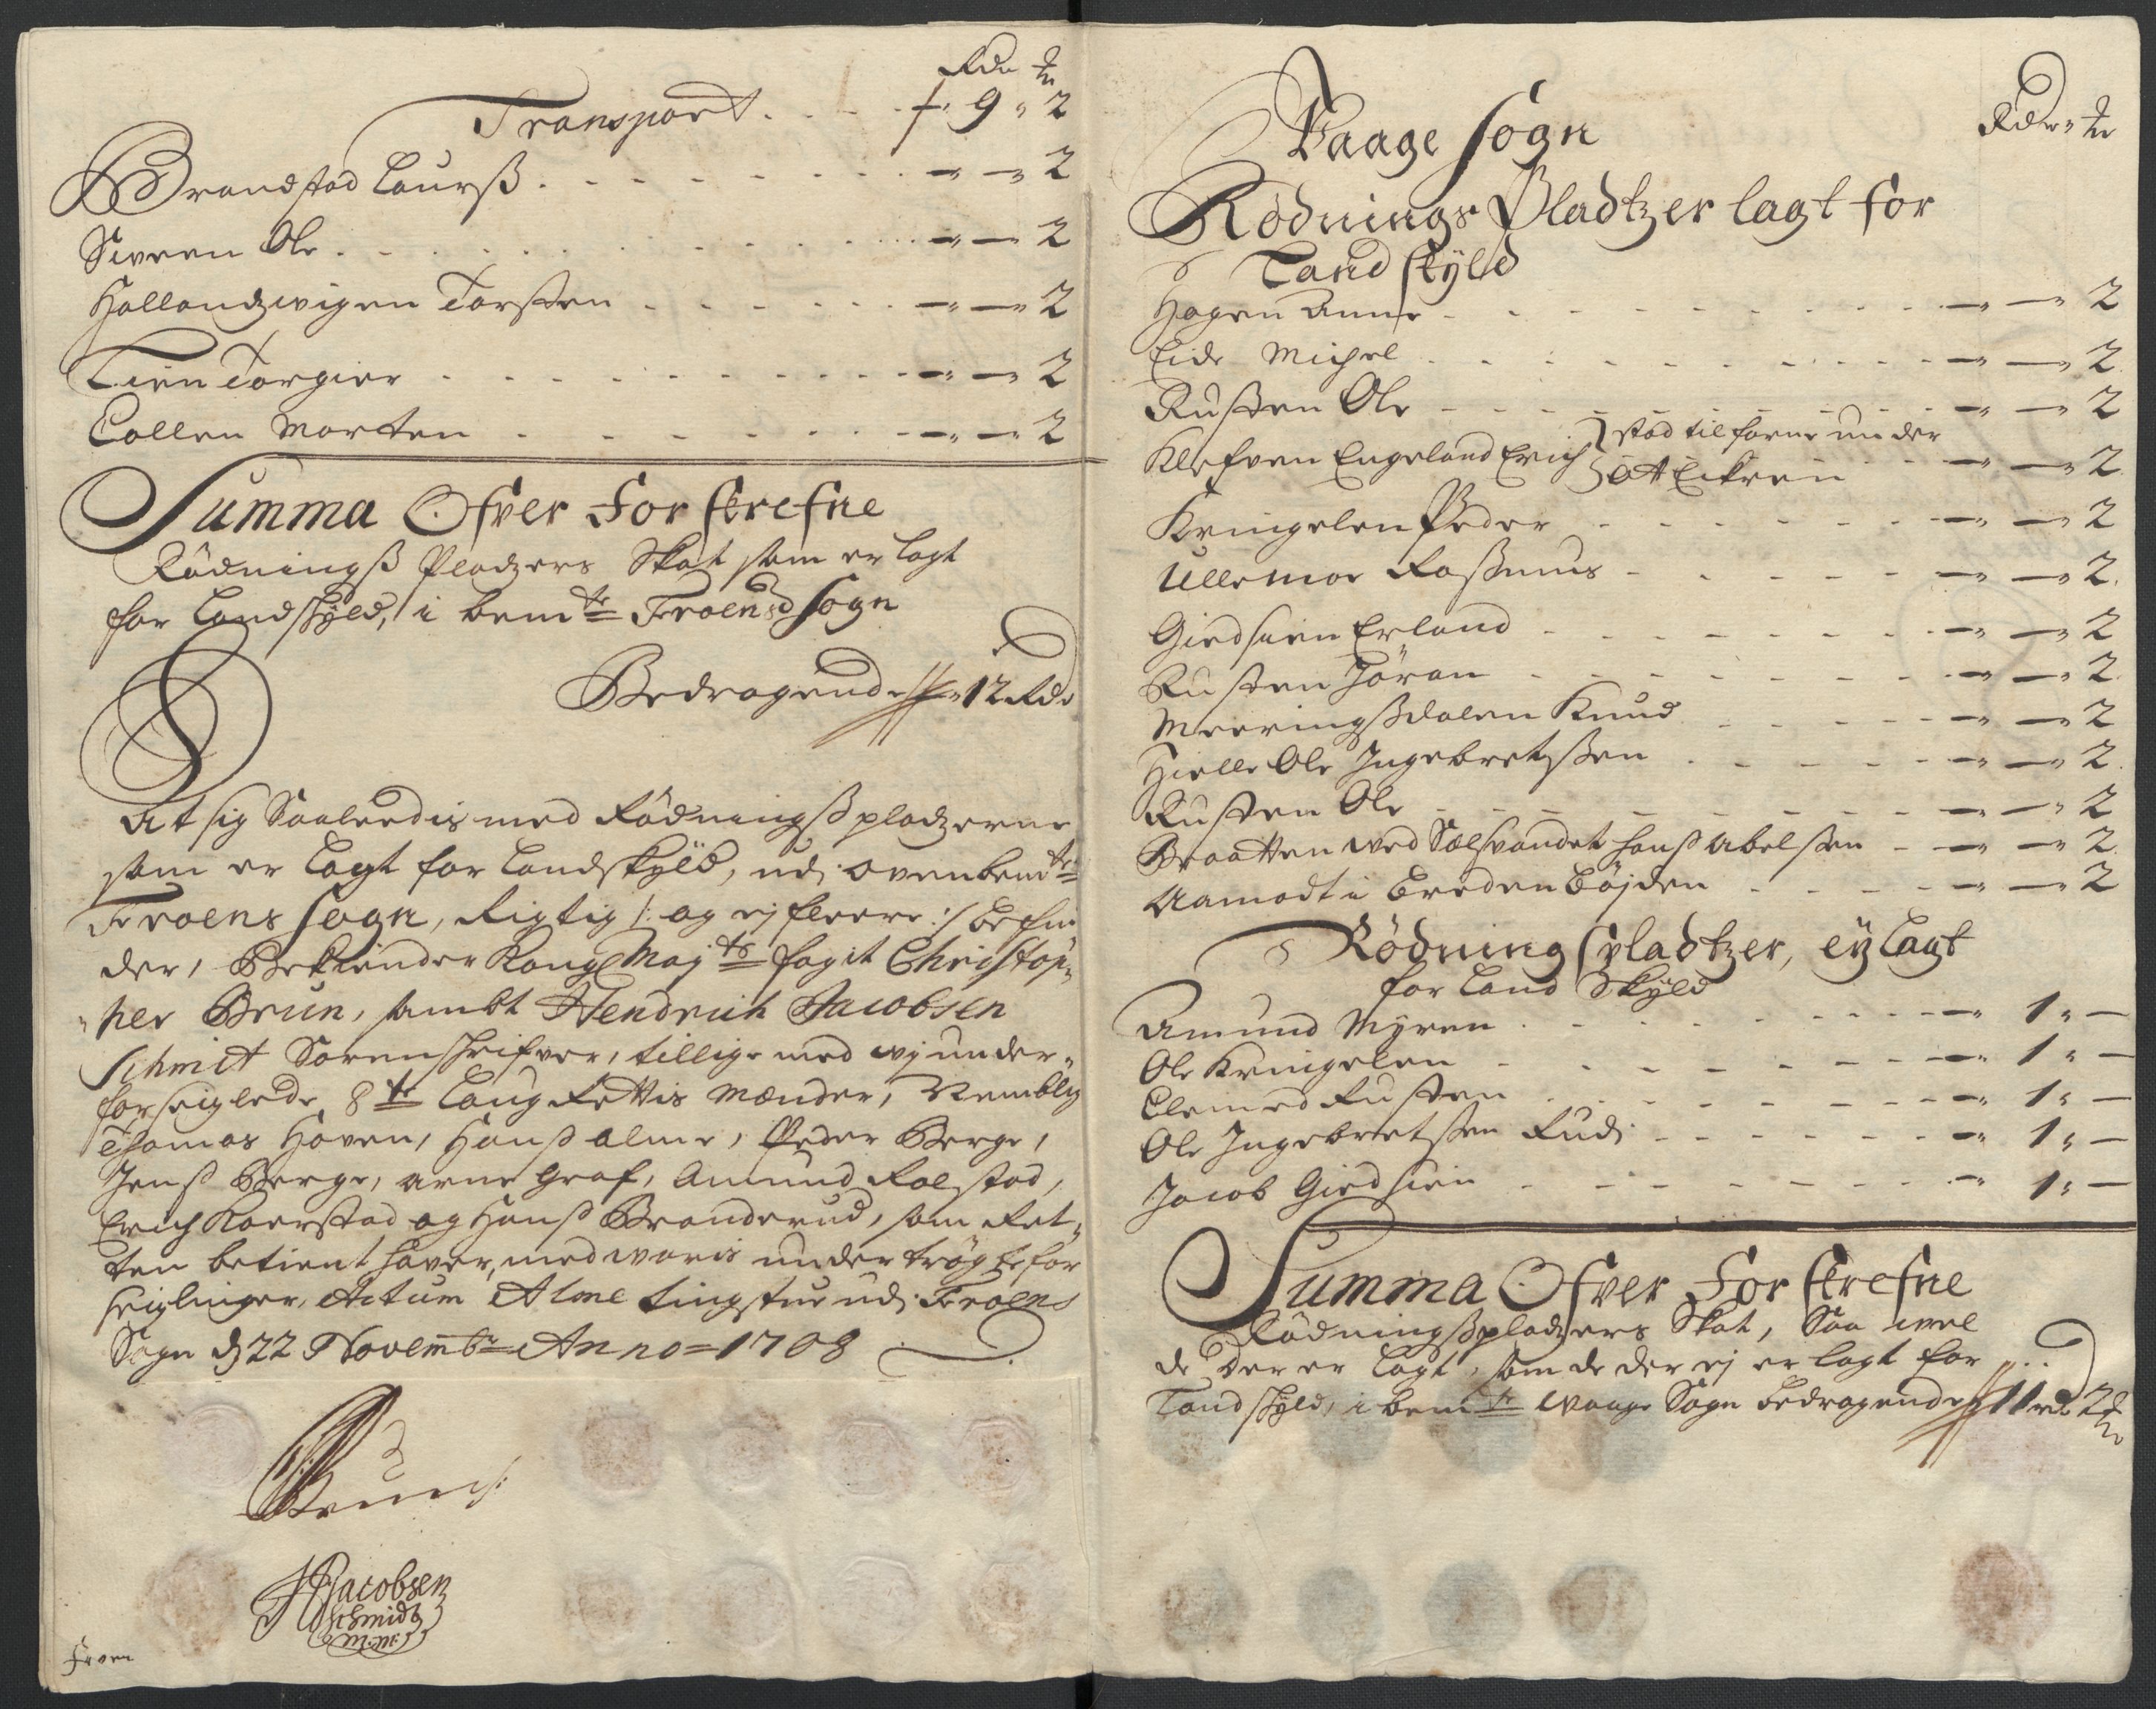 Rdr
Transport . . . 9 " 2
Brandstad Laurß . . . " — " 2
Sween Ole . . . " — " 2
Hallandzwigen Torsten . . . " — " 2
Lien Torgier . . . " — " 2
Collen Morten . . . " — " 2
Summa Ofver For skrefne
Rödningß Pladzers Skat som er lagt
for Landskÿld, i bemte Froens Sogn
Bedragende 12 Rdr
At sig Saaleedis med Rödningßpladzerne
som er Lagt for Landskÿld, udj ovenbemte
Froens Sogn, Rigtig /: og ej fleere :/ befin
der, Bekiender Kongl Mayts fogit Christop-
"her Brun, sambt Hendrich Jacobsen
Schmidt Sorenskrifver, tillige med wj under-
forseiglede 8te Laug Rettis Mænder, Nemblig
Thomas Hoven, Hanß alme, Peder Berge,
Jenß Berge, arne Graf, Amund Rolstad,
Erich Kaerstad og Hanß Branderud, som Ret-
ten betient haver, med woris undertrögte for
seiglinger, Actum Alme tingstue udj Froens
Sogn d 22 Novembr Anno = 1708
Brun
HJacobsen
Schmidt
M:m:
Froen
Rdr
Vaage Sogn
Rödnings Pladtzer lagt for
Land skÿld
Hagen Anne . . . " — " 2
Eide Michel . . . " — " 2
Rusten Ole . . . " — " 2
stod til forne under
Klefven Engeland Erich Ekren . . . " — " 2
Kringelen Peder . . . " — " 2
Ullemoe Raßmus . . . " — " 2
Giedsiien Erland . . . " — " 2
Rusten Jöran . . . " — " 2
Meeringßdalen Knud . . . " — " 2
Hielle Ole Ingebretßen . . . " — " 2
Rusten Ole . . . " — " 2
Braatten wed Sælsvandet Hanß Abelßen . . . " — " 2
Aamodt i Breden Böÿden . . . " — " 2
Rödning spladtzer, eÿ lagt
for Land Skÿld
Amund Mÿren . . . " 1 " —
Ole Kringelen . . . " 1 " —
Clemed Rusten . . . " 1 " —
Ole Ingebretßen Rudj . . . " 1 " —
Jacob Giedsiien . . . " 1 " —
Summa Ofver For skrefne
Rödningßpladzers Skat, Saa weel
de der er Lagt, som de der ej er lagt for
Landskÿld, i bemte Waage Sogn Bedragende 11 Rdr 2